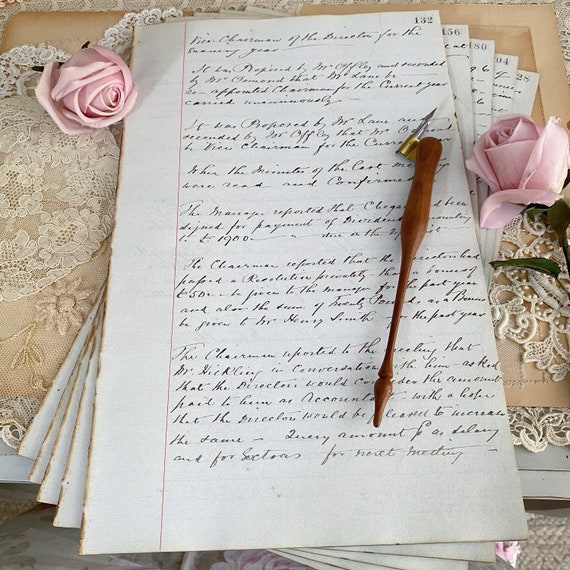 132
156
180
204
28
Vice Chairman of the Director for the
ensuing year —
It was Proposed by Mr Offley and seconded
by Mr that Mr Lane be
re-appointed Chairman for the Current year
carried unanimously —
It was Proposed by Mr Lane and
seconded by Mr Offley that Mr
be Vice Chairman for the Current
When the Minutes of the last
were read and Confirmed
The Manager reported that Cheques had been
signed for payment of Dividend amounting
to £ 1900
The Chairman reported that the Directors had
passed a Resolution privately that a bonus of
£50 be given to the manager for the past year
and also the sum of Twenty Pounds as a Bonus
be given to Mr Henry Smith for the past year
The Chairman reported to the meeting that
Mr Hickling in Conversation with him asked
that the Directors would consider the amount
paid to him as Accountant with a hope
that the Directors would be pleased to increase
the same — Query amount for as salary
and for Extras for next Meeting —